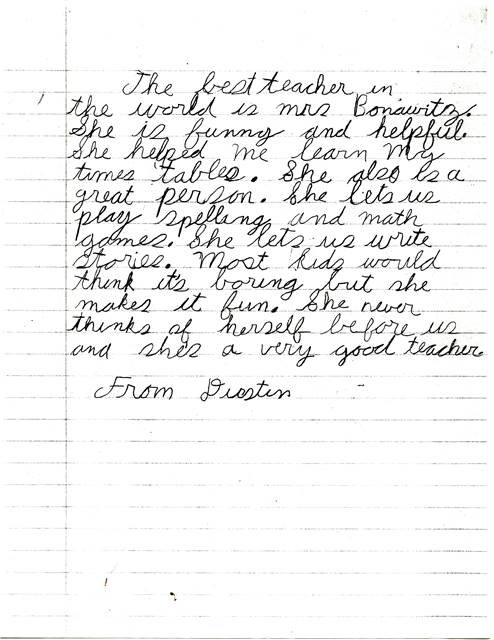 The best teacher in
the world is mrs Bonawitz.
She is funny and helpful.
She helped me learn My
times tables. She also is a
great person. She lets us
play spellang and math
games. She lets us write
stories. Most kids would
think it's boring but she
makes it fun. She never
thinks of herself before us
and she's a very good teacher.
From